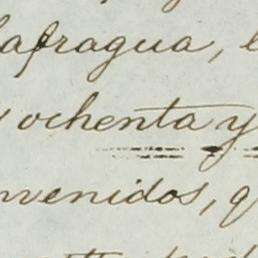 lafragua, e
ochenta y
nvenidos, q